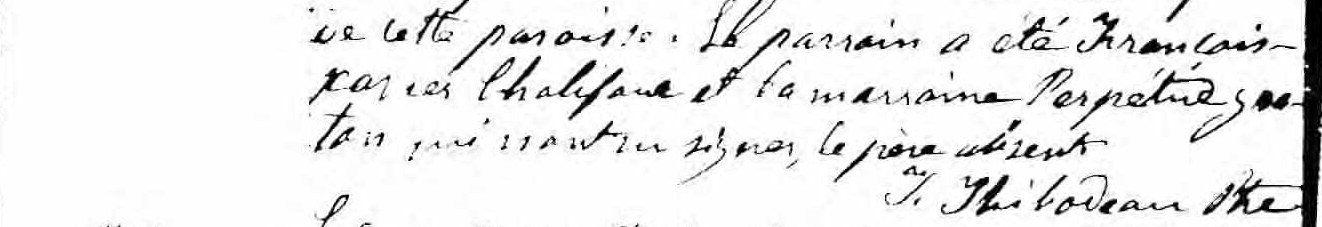 de cette paroisse. Le parrain a été François-
xavier Chalifoux et la marraine Perpétue Gra-
ton qui n'ont su signer, le père absent
T. Thibodeau Ptre